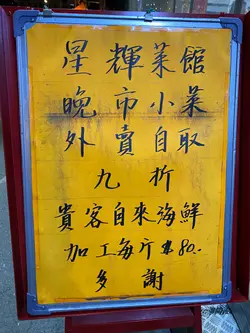 星輝菜館
晚市小菜
外賣自取
九折
貴客自來海鮮
加工每斤$80.
多謝